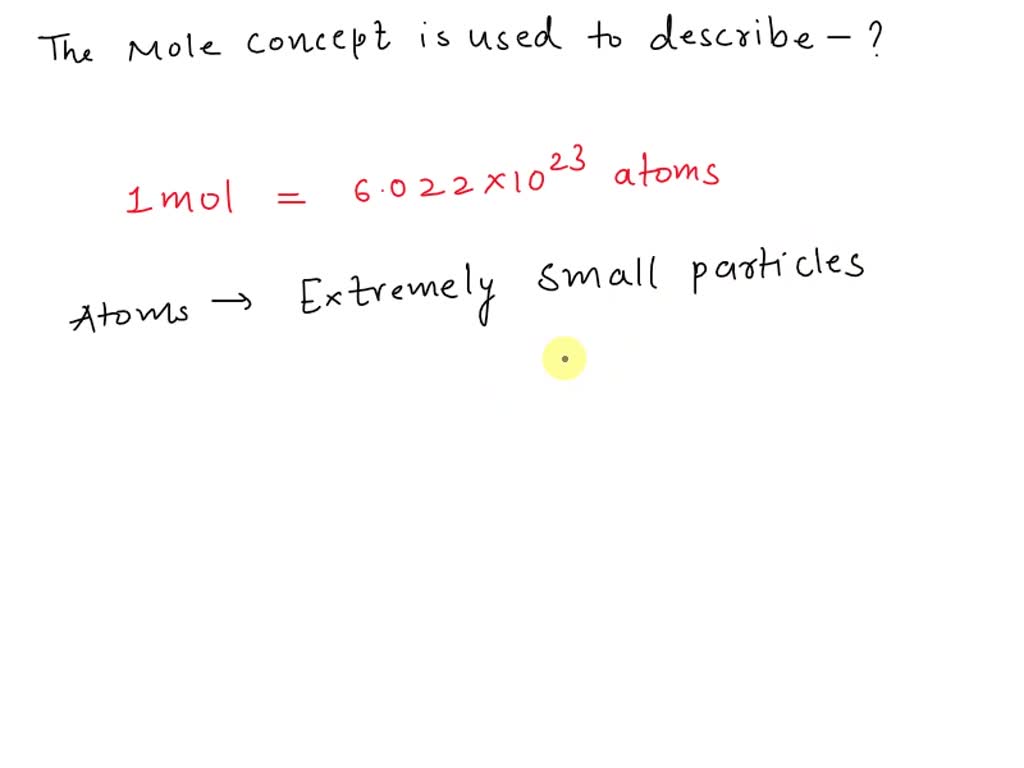 The Mole concept is used to describe - ?
1 mol = 6.022×10²³ atoms
Atoms → Extremely small particles